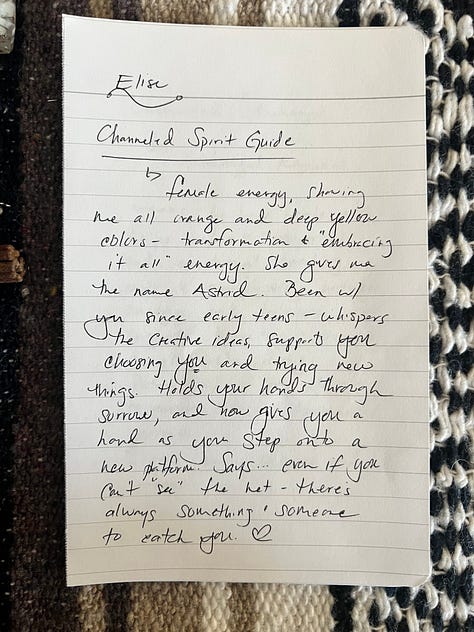 Elise
Channeled Spirit Guide
↳ female energy, showing
me all orange and deep yellow
colors - transformation & "embracing
it all" energy. She gives me
the name Astrid. Been w/
you since early teens - whispers
the creative ideas, supports you
choosing you and trying new
things. Holds your hands through
sorrow, and now gives you a
hand as you step onto a
new platform. Says... even if you
can't "see" the net - there's
always something & someone
to catch you. ♡